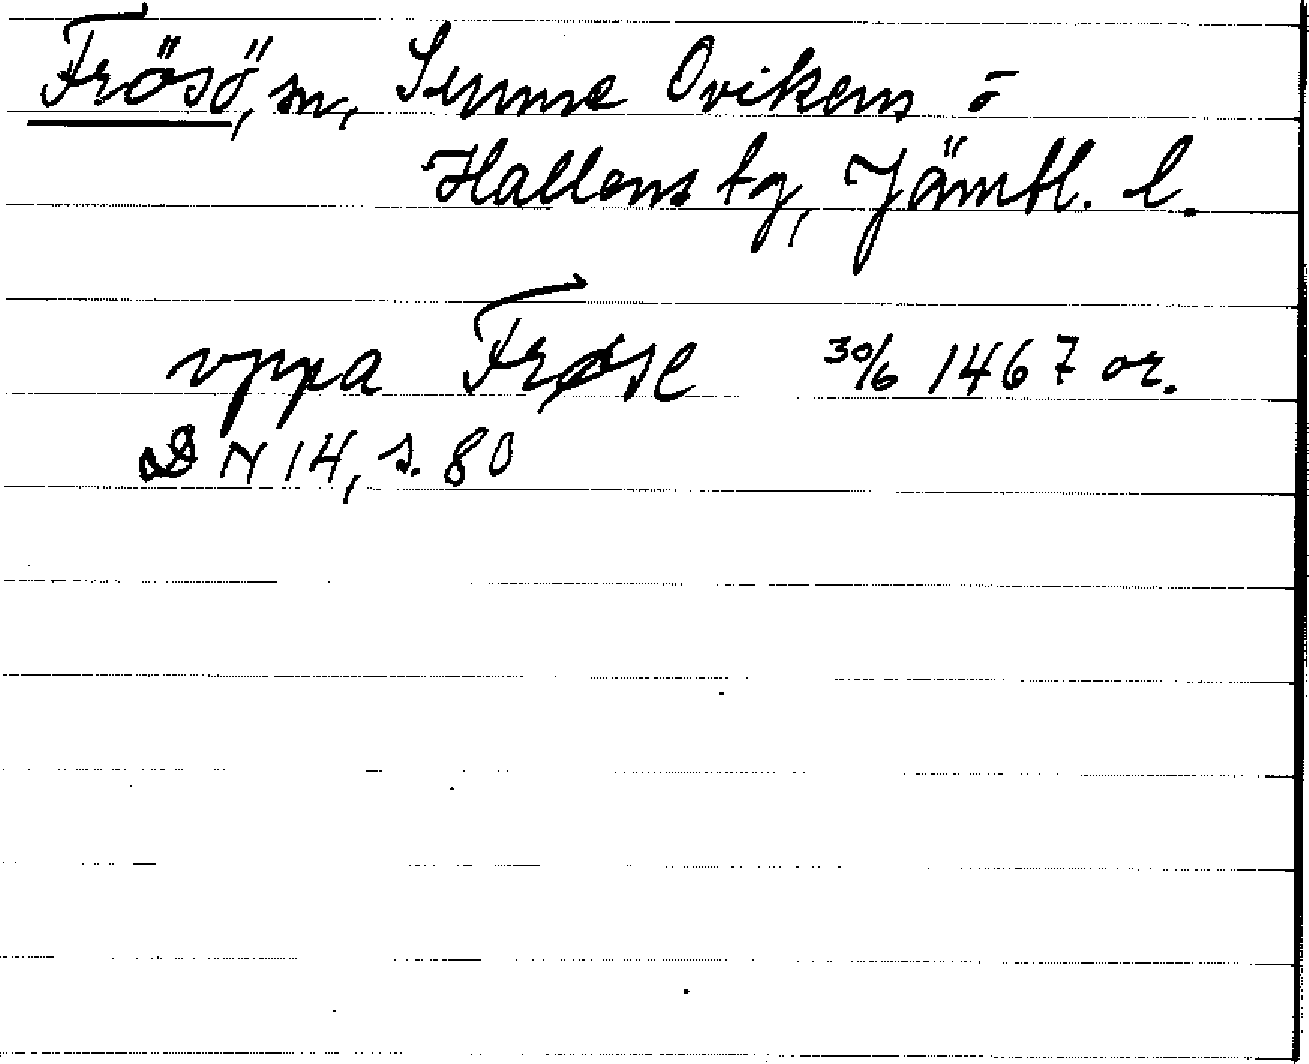 Frösö, sn, Sunne Oviken o
Hallens tg, Jämtl. l.
vppa Frøse 30/6 1467 or.
DN 14, s. 80